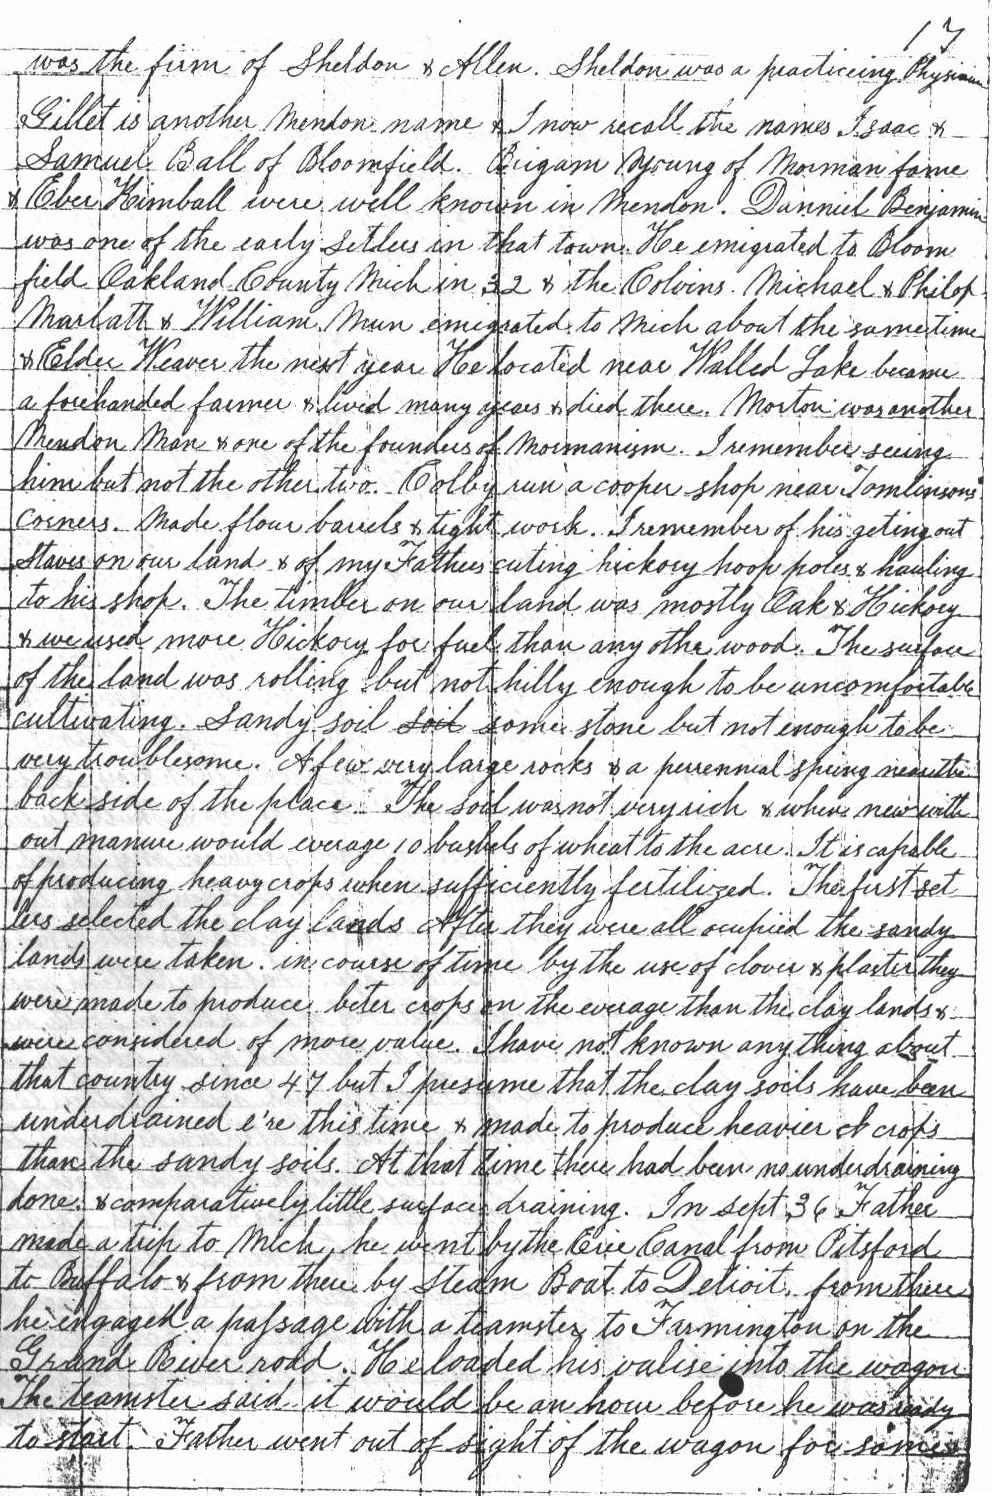 17
was the firm of Sheldon & Allen. Sheldon was a practiceing Physician
Gillet is another Mendon name & I now recall the names Isaac &
Samuel Ball of Bloomfield. Brigam Young of Morman fame
& Eber Kimball were well known in Mendon. Danniel Benjamin
was one of the early setlers in that town. He emigrated to Bloom
field Oakland County Mich in 32 & the Colvins. Michael & Philop
Marlatt & William Mun emigrated to Mich about the same time
& Elder Weaver the next year He located near Walled Lake became
a forehanded farmer & lived many years & died there. Morton was another
Mendon Man & one of the founders of Mormanism. I remember seeing
him but not the other two. Colby run a cooper shop near Tomlinsons
Corners. Made flour barrels & tight work. I remember of his geting out
Staves on our land & of my Fathers cuting hickory hoop poles & hauling
to his shop. The timber on our land was mostly Oak & Hickory
& we used more Hickory for fuel than any other wood. The surface
of the land was rolling but not hilly enough to be uncomfortable
cultivating. Sandy soil soil some stone but not enough to be
very troublesome. A few very large rocks & a perrennial spring near the
back side of the place. The soil was not very rich & when new with
out manure would everage 10 bushels of wheat to the acre. It is capable
of producing heavy crops when sufficiently fertilized. The first set
lers selected the clay lands After they were all ocupied the sandy
lands were taken. in course of time by the use of clover & plaster they
were made to produce beter crops on the everage than the clay lands &
were considered of more value. I have not known any thing about
that country since 47 but I presume that the clay soils have been
underdrained e're this time & made to produce heavier crops
than the sandy soils. At that time there had been no underdraining
done. & comparatively little surface draining. In sept 36 Father
made a trip to Mich, he went by the Erie Canal from Pitsford
to Buffalo & from there by Steam Boat to Detroit. from there
he engaged a passage with a teamster to Farmington on the
Grand River road. He loaded his valise into the wagon
The teamster said it would be an hour before he was ready
to start. Father went out of sight of the wagon for some